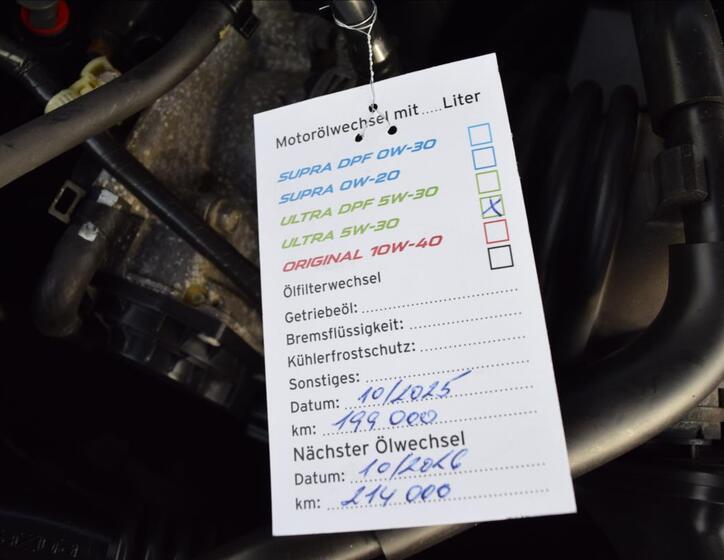 Motorölwechsel mit.....Liter
SUPRA DPF 0W-30
SUPRA 0W-20
ULTRA DPF 5W-30
ULTRA 5W-30
ORIGINAL 10W-40
Ölfilterwechsel
Getriebeöl:
Bremsflüssigkeit:
Kühlerfrostschutz:
Sonstiges:
Datum: 10/2025
km: 199 000
Nächster Ölwechsel
Datum: 10/2026
km: 214 000